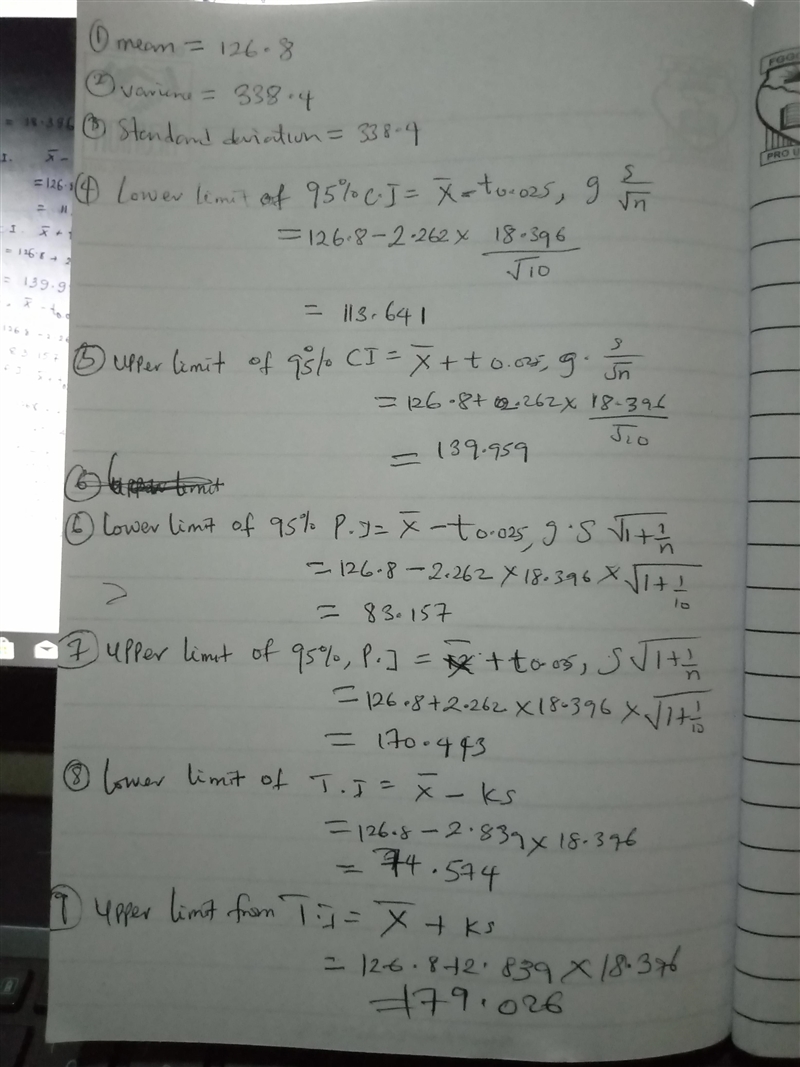 ① mean = 126.8
② varience = 338.4
③ Standard deviation = 338.4
④ Lower limit of 95% C.I = x̄ - t0.025, 9 s/√n
= 126.8 - 2.262 × 18.396/√10
= 113.641
⑤ Upper limit of 95% CI = x̄ + t0.025, 9. s/√n
= 126.8 + 2.262 × 18.396/√10
= 139.959
⑥ Lower limit of 95% P.I = x̄ - t0.025, 9. S √1+1/n
= 126.8 - 2.262 × 18.396 × √1+1/10
= 83.157
⑦ Upper limit of 95%, P.I = x̄ + t0.025, S √1+1/n
= 126.8 + 2.262 × 18.396 × √1+1/10
= 170.443
⑧ Lower limit of T.I = x̄ - ks
= 126.8 - 2.839 × 18.396
= 74.574
⑨ Upper limit from T.I = x̄ + ks
= 126.8 + 2.839 × 18.396
= 179.026
PRO U